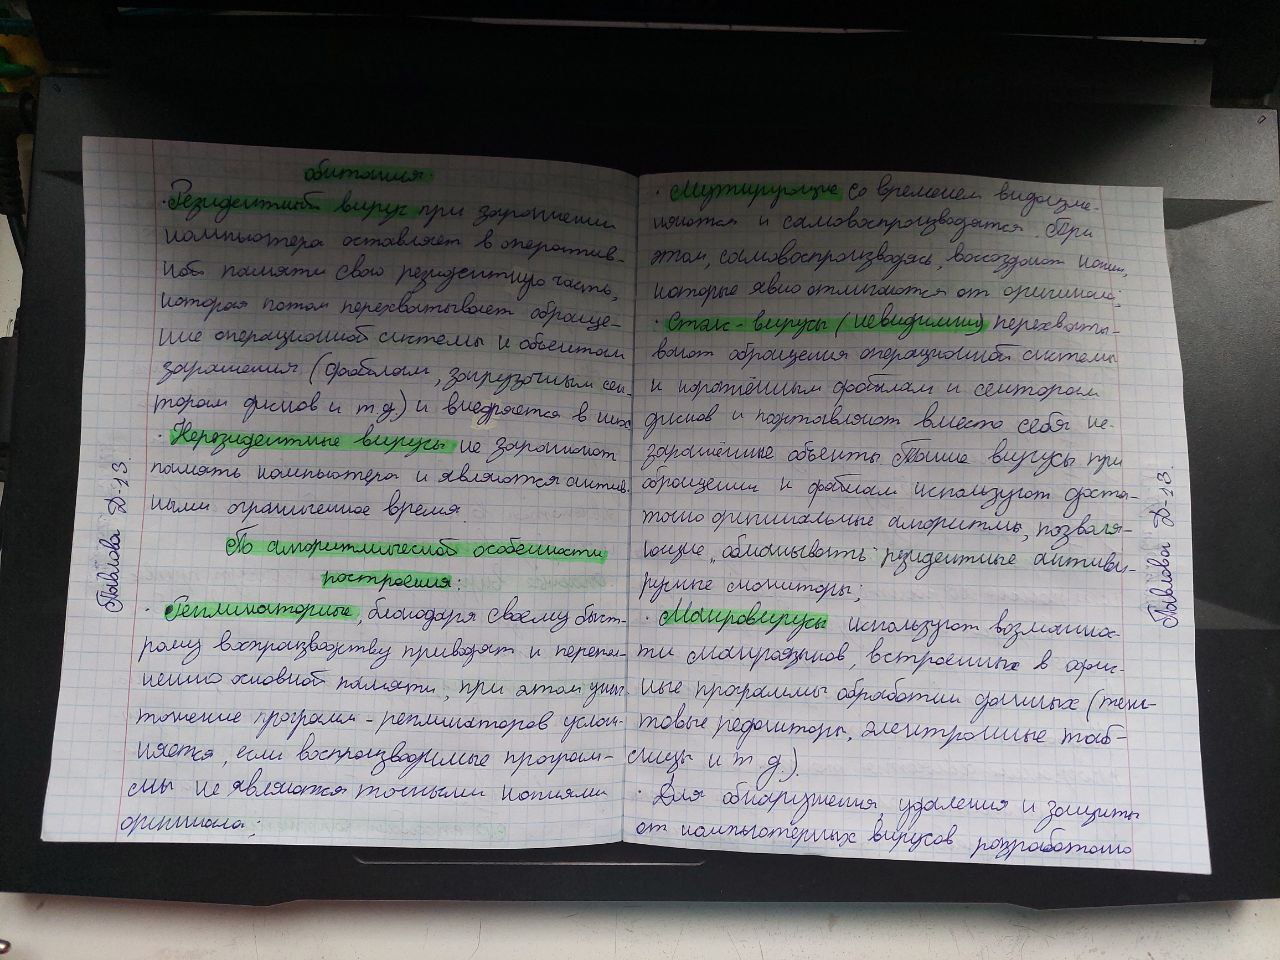 обитания.
· Резидентный вирус при заражении
компьютера оставляет в оператив-
ной памяти свою резидентную часть,
которая потом перехватывает обраще-
ние операционной системы к объектам
заражения (файлам, загрузочным сек-
торам дисков и т д) и внедряется в них
· Нерезидентные вирусы не заражают
память компьютера и являются актив-
ными ограниченное время.
По алгоритмической особенности
построения:
· Репликаторные, благодаря своему быст-
рому воспроизводству приводят к перепол-
нению основной памяти, при этом унич
тожение программ-репликаторов услож-
няется, если воспроизводимые програм-
мы не являются точными копиями
оригинала;
Павлова Д-13.
· Мутирующие со временем видоизме-
няются и самовоспроизводятся. При
этом, самовоспроизводясь, воссоздают копии,
которые явно отличаются от оригинала;
· Стэлс-вирусы (невидимки) перехваты-
вают обращения операционной системы
к поражённым файлам и секторам
дисков и подставляют вместо себя не-
заражённые объекты Такие вирусы при
обращении к файлам используют доста-
точно оригинальные алгоритмы, позволя-
ющие „обманывать" резидентные антиви-
русные мониторы;
· Макровирусы используют возможнос-
ти макроязыков, встроенных в офис-
ные программы обработки данных (текс-
товые редакторы, электронные таб-
лицы и т д).
· Для обнаружения, удаления и защиты
от компьютерных вирусов разработано
Павлова Д-13.